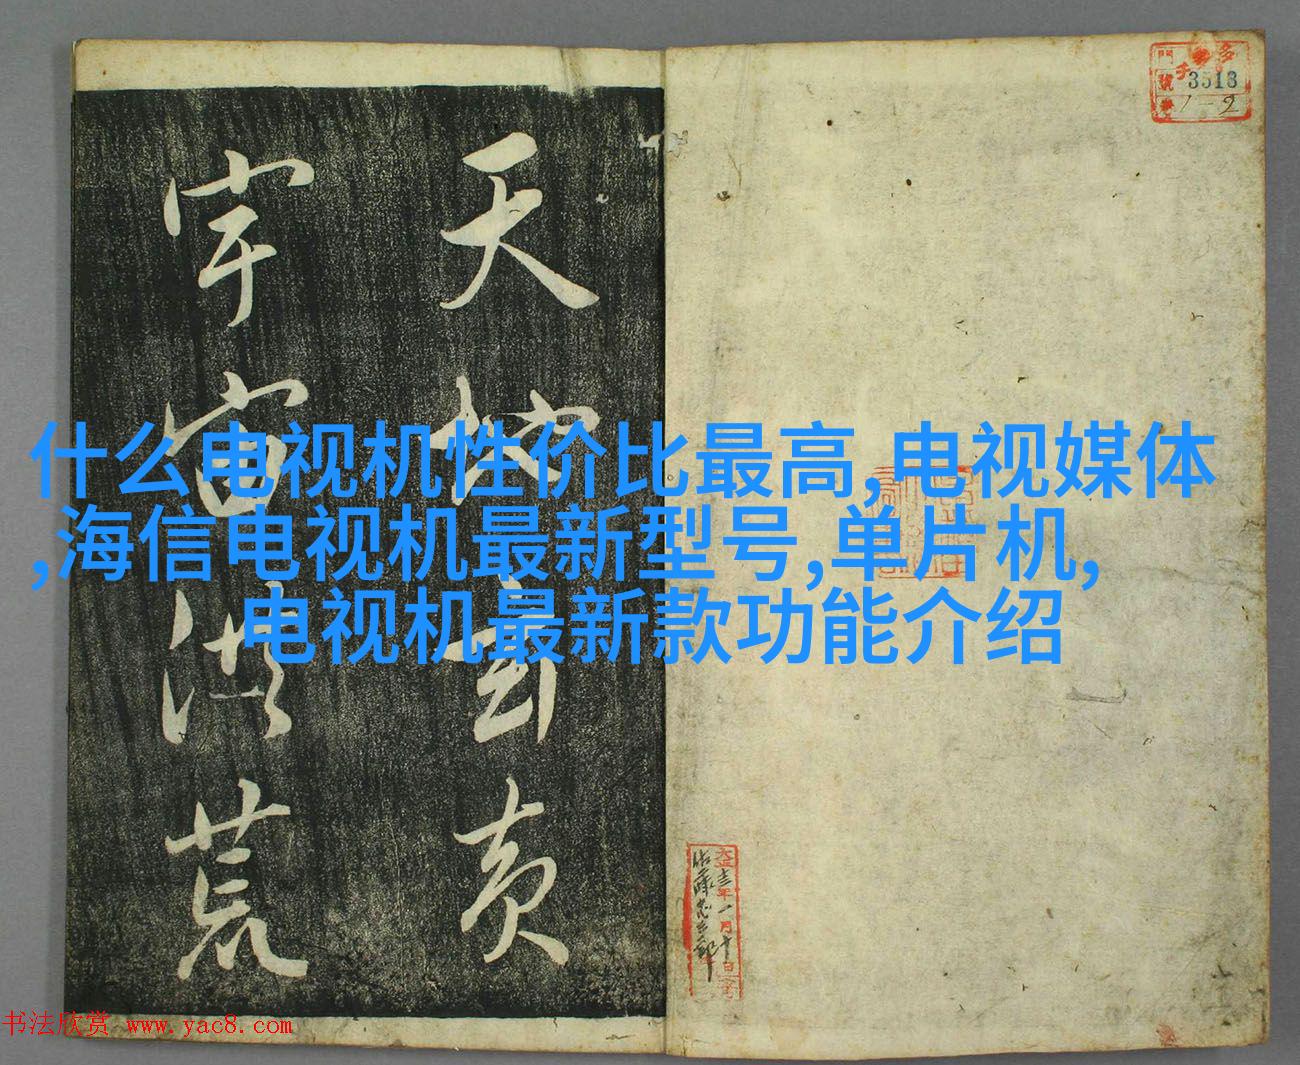 天地玄黄
宇宙洪荒
3513
1-2
什么电视机性价比最高,电视媒体
,海信电视机最新型号,单片机,
电视机最新款功能介绍
书法欣赏 www.yac8.com